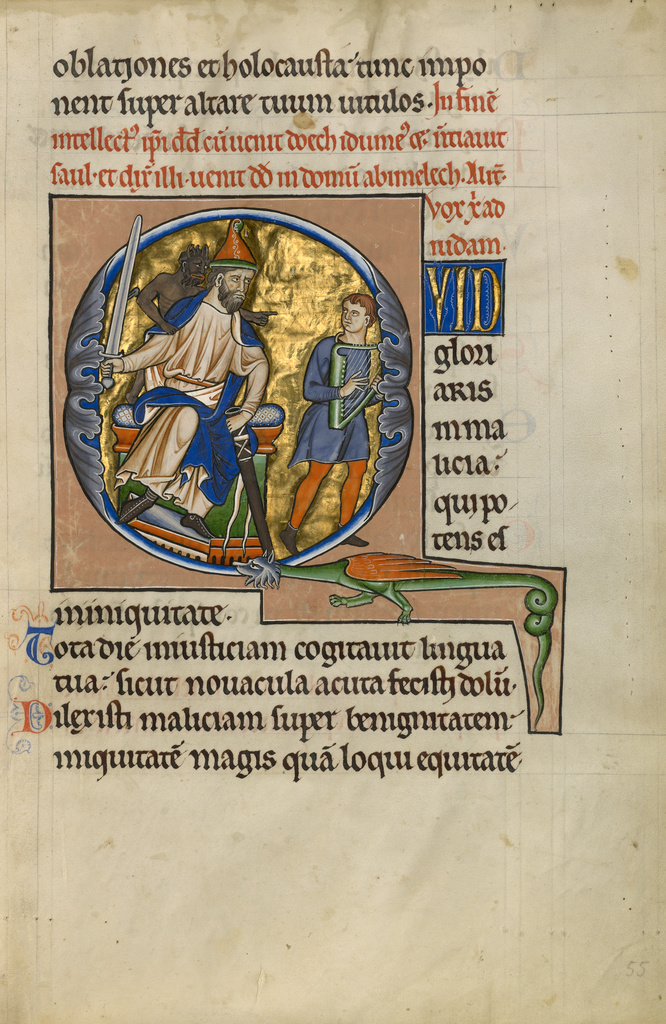 oblationes et holocausta: tunc impo
nent super altare tuum uitulos. In finē
intellectꝰ ipi dd cū uenit doech idumeꝰ ⁊ ntiauit
saul. et dix̄ illi. uenit dd in domū abimelech.
vox x̄ ad
iudam.
Q VID
glori
aris
in ma
licia:
qui po
tens es
in iniquitate.
Tota die iniusticiam cogitauit lingua
tua: sicut nouacula acuta fecisti dolū.
Dilexisti maliciam super benignitatem
iniquitatē magis quā loqui equitatē.
55